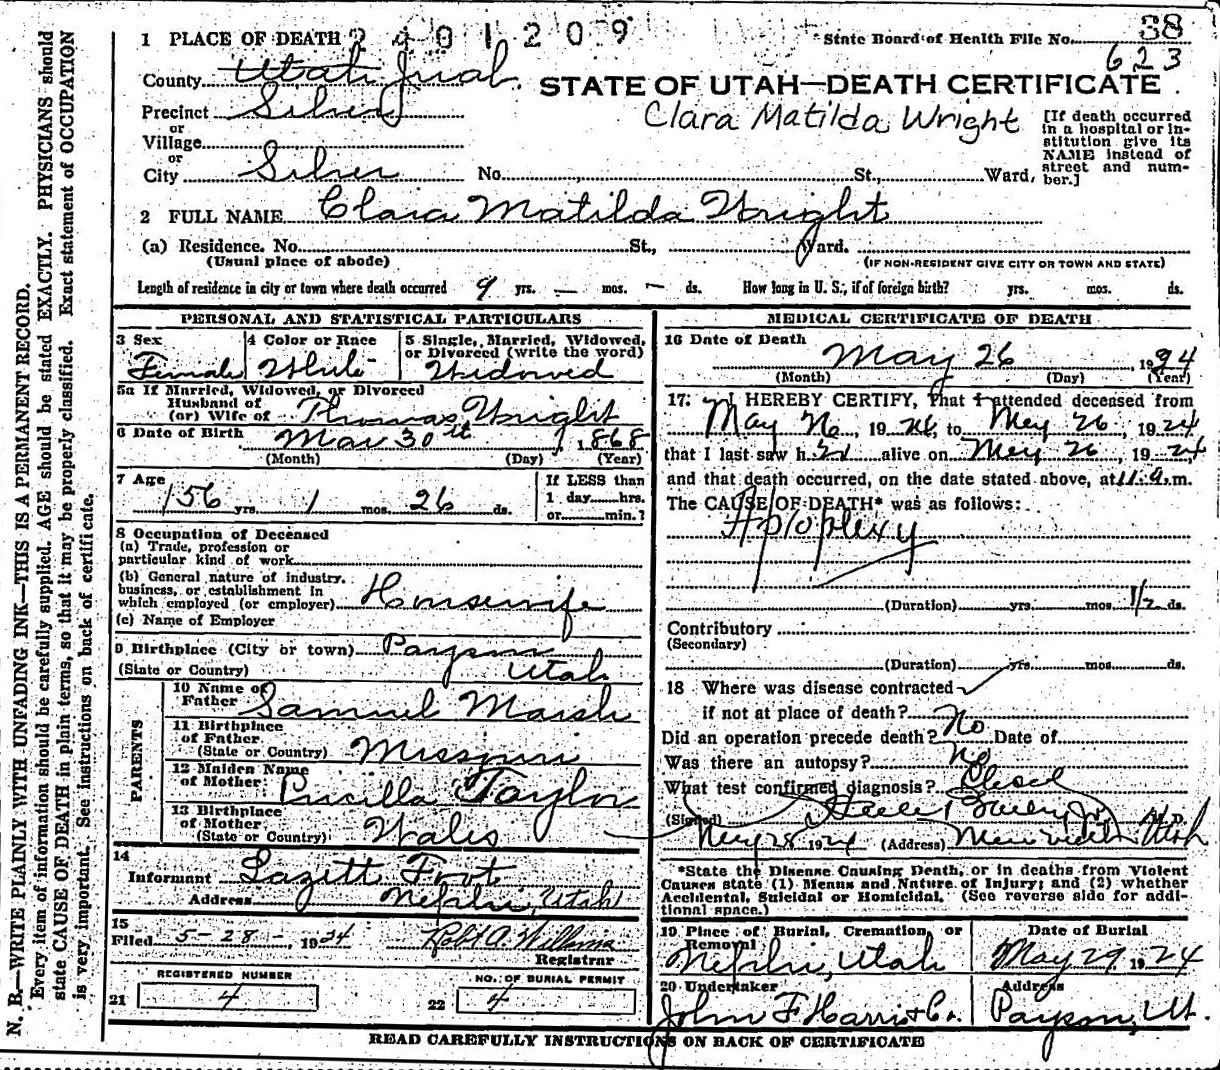 N. B.—WRITE PLAINLY WITH UNFADING INK—THIS IS A PERMANENT RECORD.
Every item of information should be carefully supplied. AGE should be stated EXACTLY. PHYSICIANS should
state CAUSE OF DEATH in plain terms, so that it may be properly classified. Exact statement of OCCUPATION
is very important. See instructions on back of certificate.
1 PLACE OF DEATH 2401209
State Board of Health File No. 38
623
County Utah Juab.
STATE OF UTAH—DEATH CERTIFICATE
Precinct Silver
Clara Matilda Wright
[If death occurred
in a hospital or in-
stitution give its
NAME instead of
street and num-
ber.]
or
Village
or
City Silver No. St., Ward,
2 FULL NAME Clara Matilda Wright
(a) Residence. No. St., Ward.
(Usual place of abode) (IF NON-RESIDENT GIVE CITY OR TOWN AND STATE)
Length of residence in city or town where death occurred 9 yrs. — mos. — ds. How long in U. S., if of foreign birth? yrs. mos. ds.
PERSONAL AND STATISTICAL PARTICULARS
3 Sex 4 Color or Race 5 Single, Married, Widowed,
or Divorced (write the word)
Female White Widowed
5a If Married, Widowed, or Divorced
Husband of
(or) Wife of Thomas Wright
6 Date of Birth Mar 30 1868
(Month) (Day) (Year)
7 Age 56 yrs. 1 mos. 26 ds.
If LESS than
1 day hrs.
or min.?
8 Occupation of Deceased
(a) Trade, profession or
particular kind of work
(b) General nature of industry.
business, or establishment in
which employed (or employer) Housewife
(c) Name of Employer
9 Birthplace (City or town) Payson
(State or Country) Utah
PARENTS
10 Name of
Father Samuel Marsh
11 Birthplace
of Father.
(State or Country) Missouri
12 Maiden Name
of Mother Pricilla Taylor
13 Birthplace
of Mother
(State or Country) Wales
14
Informant Lazett Foot
Address Nephi, Utah
15
Filed 5-28-, 1924 Robt A. Williams
Registrar
REGISTERED NUMBER
21 4
NO. OF BURIAL PERMIT
22 4
MEDICAL CERTIFICATE OF DEATH
16 Date of Death May 26 1924
(Month) (Day) (Year)
17: I HEREBY CERTIFY, That I attended deceased from
May 26, 1924, to May 26, 1924
that I last saw h alive on May 26, 1924
and that death occurred, on the date stated above, at 11 a.m.
The CAUSE OF DEATH* was as follows:
Apoplexy
(Duration) yrs. mos. 1/2 ds.
Contributory
(Secondary)
(Duration) yrs. mos. ds.
18 Where was disease contracted
if not at place of death?
Did an operation precede death? No Date of
Was there an autopsy? No
What test confirmed diagnosis?
(Signed) Steele Bailey Jr. M. D.
May 28 1924 (Address) Utah
*State the Disease Causing Death, or in deaths from Violent
Causes state (1) Menus and Nature of Injury; and (2) whether
Accidental, Suicidal or Homicidal. (See reverse side for addi-
tional space.)
19 Place of Burial, Cremation, or
Removal Date of Burial
Nephi, Utah May 29 1924
20 Undertaker Address
John F Harris & Co. Payson, Ut.
READ CAREFULLY INSTRUCTIONS ON BACK OF CERTIFICATE